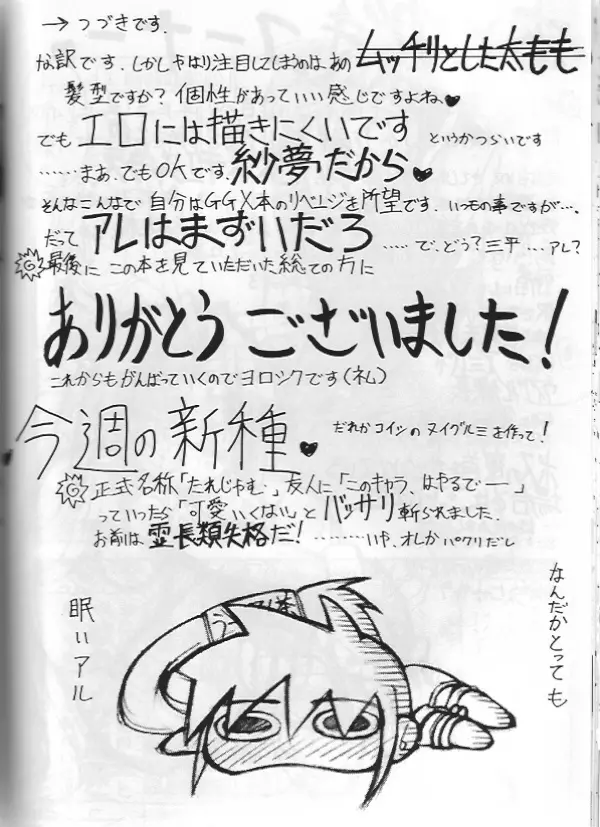 → つづきです.
な訳です.しかしやはり注目してしまうのは、あの ムッチリとした太もも
髪型ですか?個性があっていい感じですよね、♥
でも エロには描きにくいです というかつらいです
……まあ、でもOKです、紗夢だから♥
そんなこんなで 自分はGGX本のリベンジを所望です. いつもの事ですが….
だって アレはまずいだろ …… で、どう?三平 … アレ?
最後に この本を見ていただいた総ての方に
ありがとう ございました!
これからもがんばっていくのでヨロシクです(礼)
今週の新種♥ だれかコイツのヌイグルミを作って!
正式名称「たれじゃむ.」友人に「このキャラ、はやるでー」
っていったら「可愛いくない」とバッサリ斬られました.
お前は霊長類失格だ! ………いや、オレがパクリだし
なんだかとっても
眠いアル